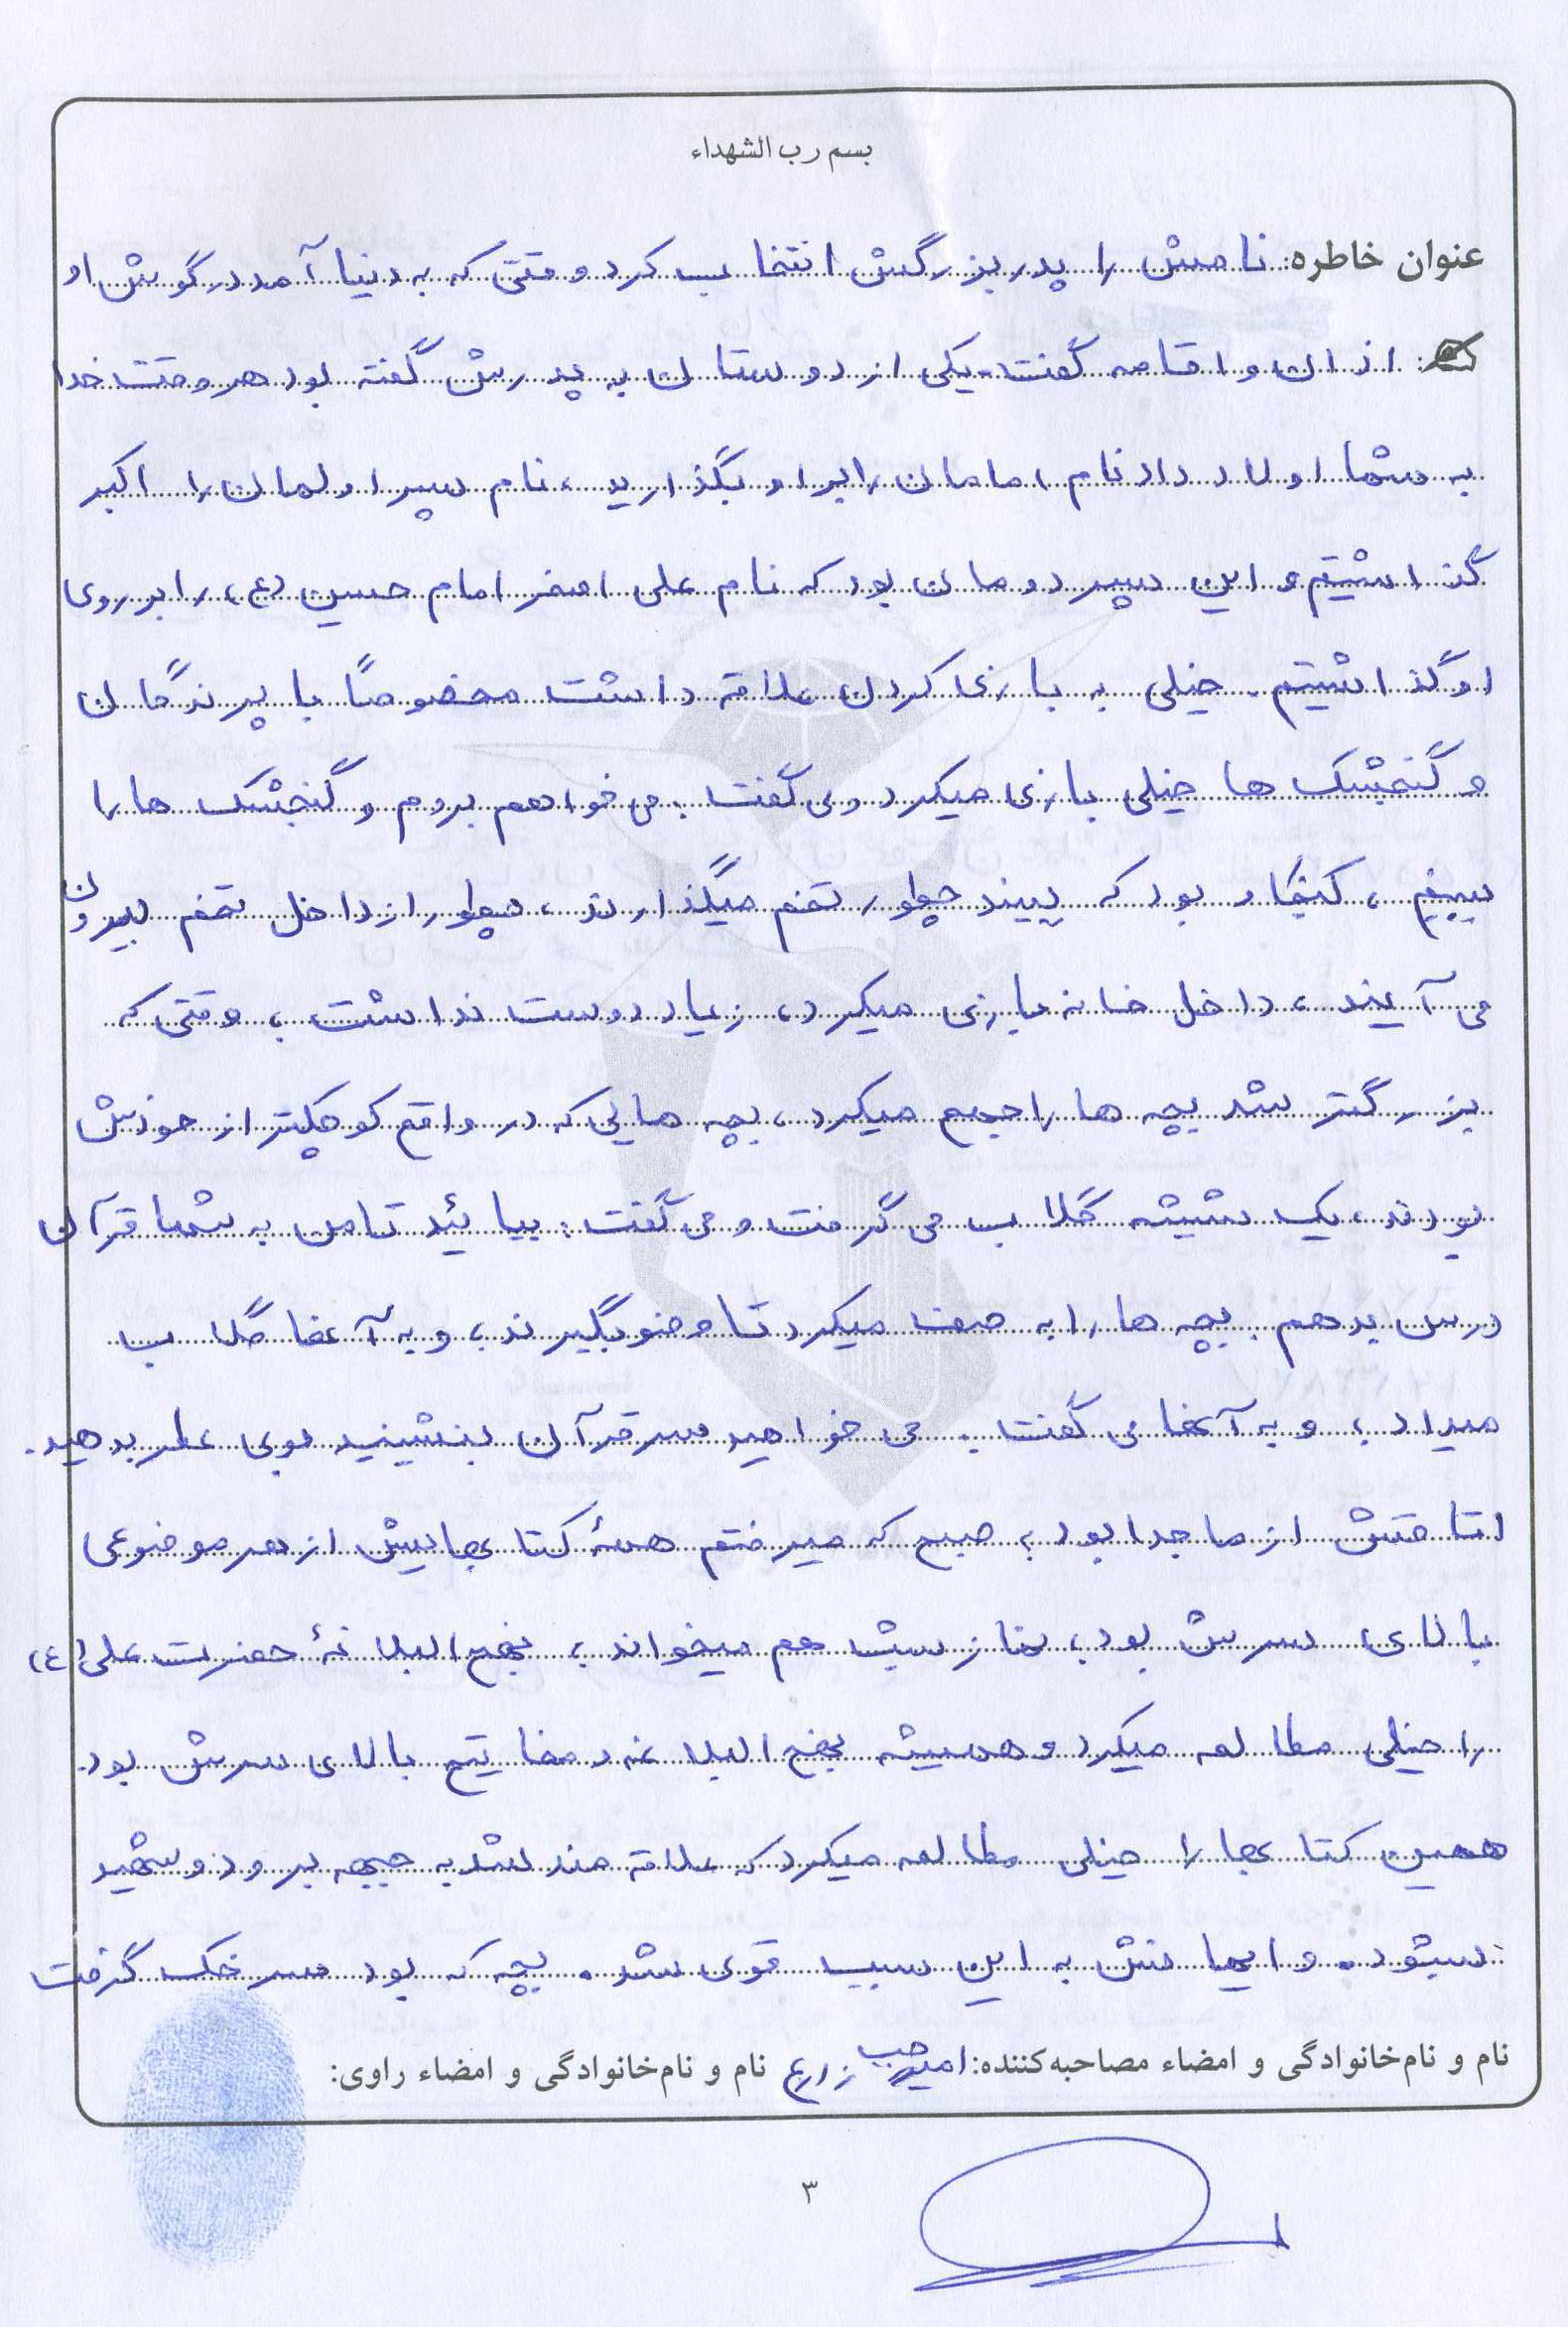 بسم رب الشهداء
عنوان خاطره: نامش را پدربزرگش انتخاب کرد وقتی که به دنیا آمد در گوش او
اذان و اقامه گفت. یکی از دوستان به پدرش گفته بود هر وقت خدا
به شما اولاد داد نام امامان را بر او بگذارید، نام پسر اولمان را اکبر
گذاشتیم و این پسر دومان بود که نام علی اصغر امام حسین (ع) را بر روی
او گذاشتیم. خیلی به بازی کردن علاقه داشت مخصوصاً با پرندگان
و گنجشک ها خیلی بازی میکرد و می گفت: می خواهم بروم و گنجشک ها را
ببینم، کنجکاو بود که ببیند چطور تخم میگذارند، چطور از داخل تخم بیرون
می آیند، داخل خانه بازی میکرد، زیاد دوست نداشت، وقتی که
بزرگتر شد بچه ها را جمع میکرد، بچه هایی که در واقع کوچکتر از خودش
بودند، یک شیشه گلاب می گرفت و می گفت: بیائید تا من به شما قرآن
درس بدهم. بچه ها را به صف میکرد تا وضو بگیرند، و به آنها گلاب
میداد، و به آنها می گفت: می خواهید سر قرآن بنشینید بوی عطر بدهید.
اتاقش از ما جدا بود، صبح که میرفتم همهٔ کتابهایش از هر موضوعی
بالای سرش بود، نماز شب هم میخواند، نهج البلاغهٔ حضرت علی (ع)
را خیلی مطالعه میکرد و همیشه نهج البلاغه و مفاتیح بالای سرش بود.
همین کتابها را خیلی مطالعه میکرد که علاقه مند شد به جبهه برود و شهید
بشود. و ایمانش به این سبب قوی شد. بچه که بود سرخک گرفت
نام و نام‌خانوادگی و امضاء مصاحبه‌کننده: امیر زارع نام و نام‌خانوادگی و امضاء راوی:
۳